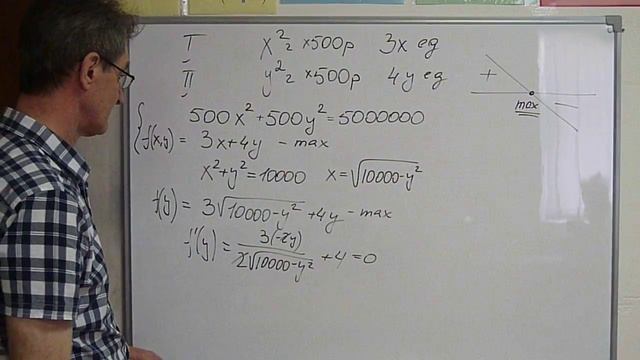 I x² г ×500р 3x ед
II y² г ×500р 4y ед
+ max −
500x²+500y²=5000000
f(x,y) = 3x+4y − max
x²+y²=10000 x=√(10000−y²)
f(y) = 3√(10000−y²) +4y − max
f'(y) = 3(−2y)/(2√(10000−y²)) +4=0